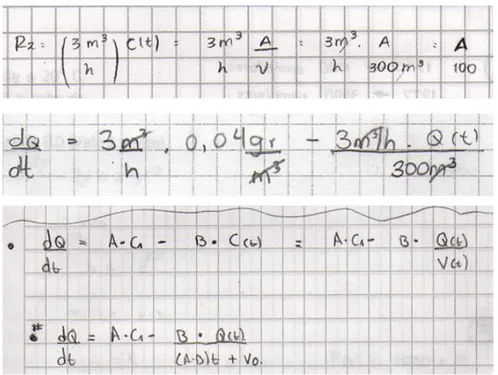 R2 = (3 m³/h) C(t) = 3m³/h A/V = 3m³/h . A/300m³ = A/100
dQ/dt = 3m³/h . 0,04gr/m³ - 3m³/h . Q(t)/300m³
• dQ/dt = A·C₁ - B·C(t) = A·C₁ - B · Q(t)/V(t)
dQ/dt = A·C₁ - B · Q(t)/(A-B)t + V₀.